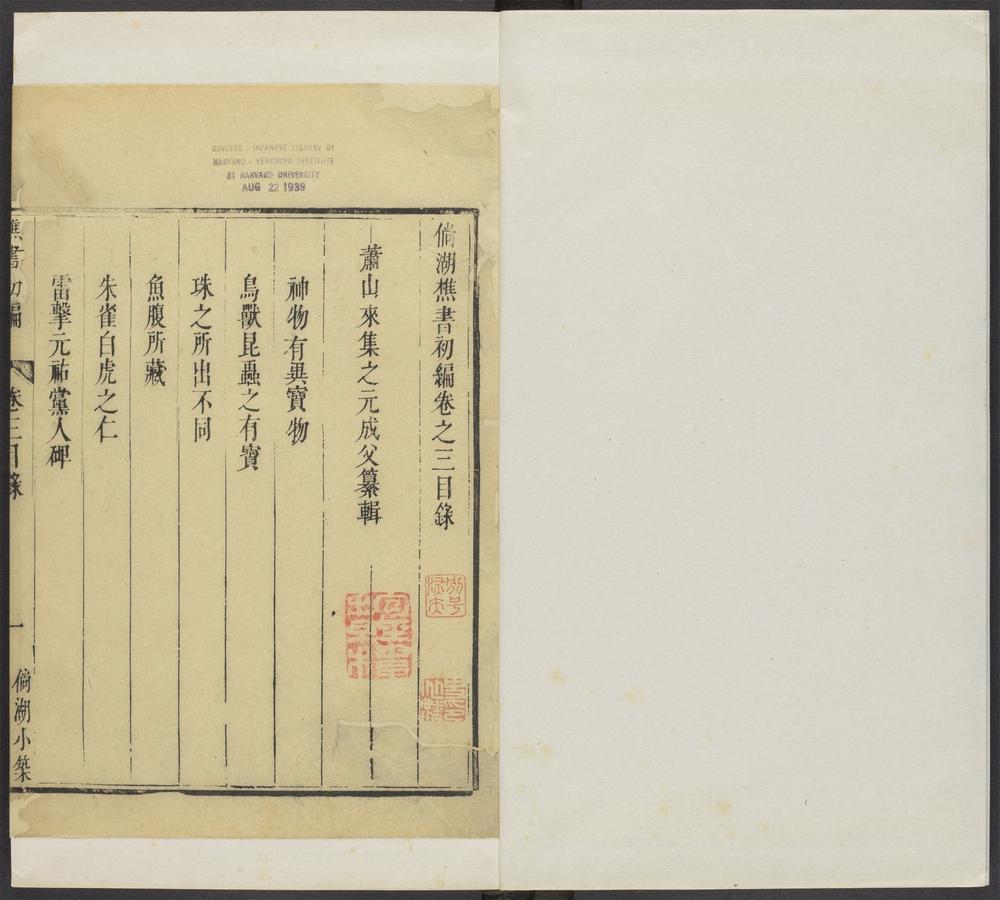 CHINESE - JAPANESE LIBRARY OF
HARVARD - YENCHING INSTITUTE
AT HARVARD UNIVERSITY
AUG 22 1939
倘湖樵書初編卷之三目錄
蕭山來集之元成父纂輯
神物有異寶物
鳥獸昆蟲之有寶
珠之所出不同
魚腹所藏
朱雀白虎之仁
雷擊元祐黨人碑
樵書初編
卷三目錄
一
倘湖小築